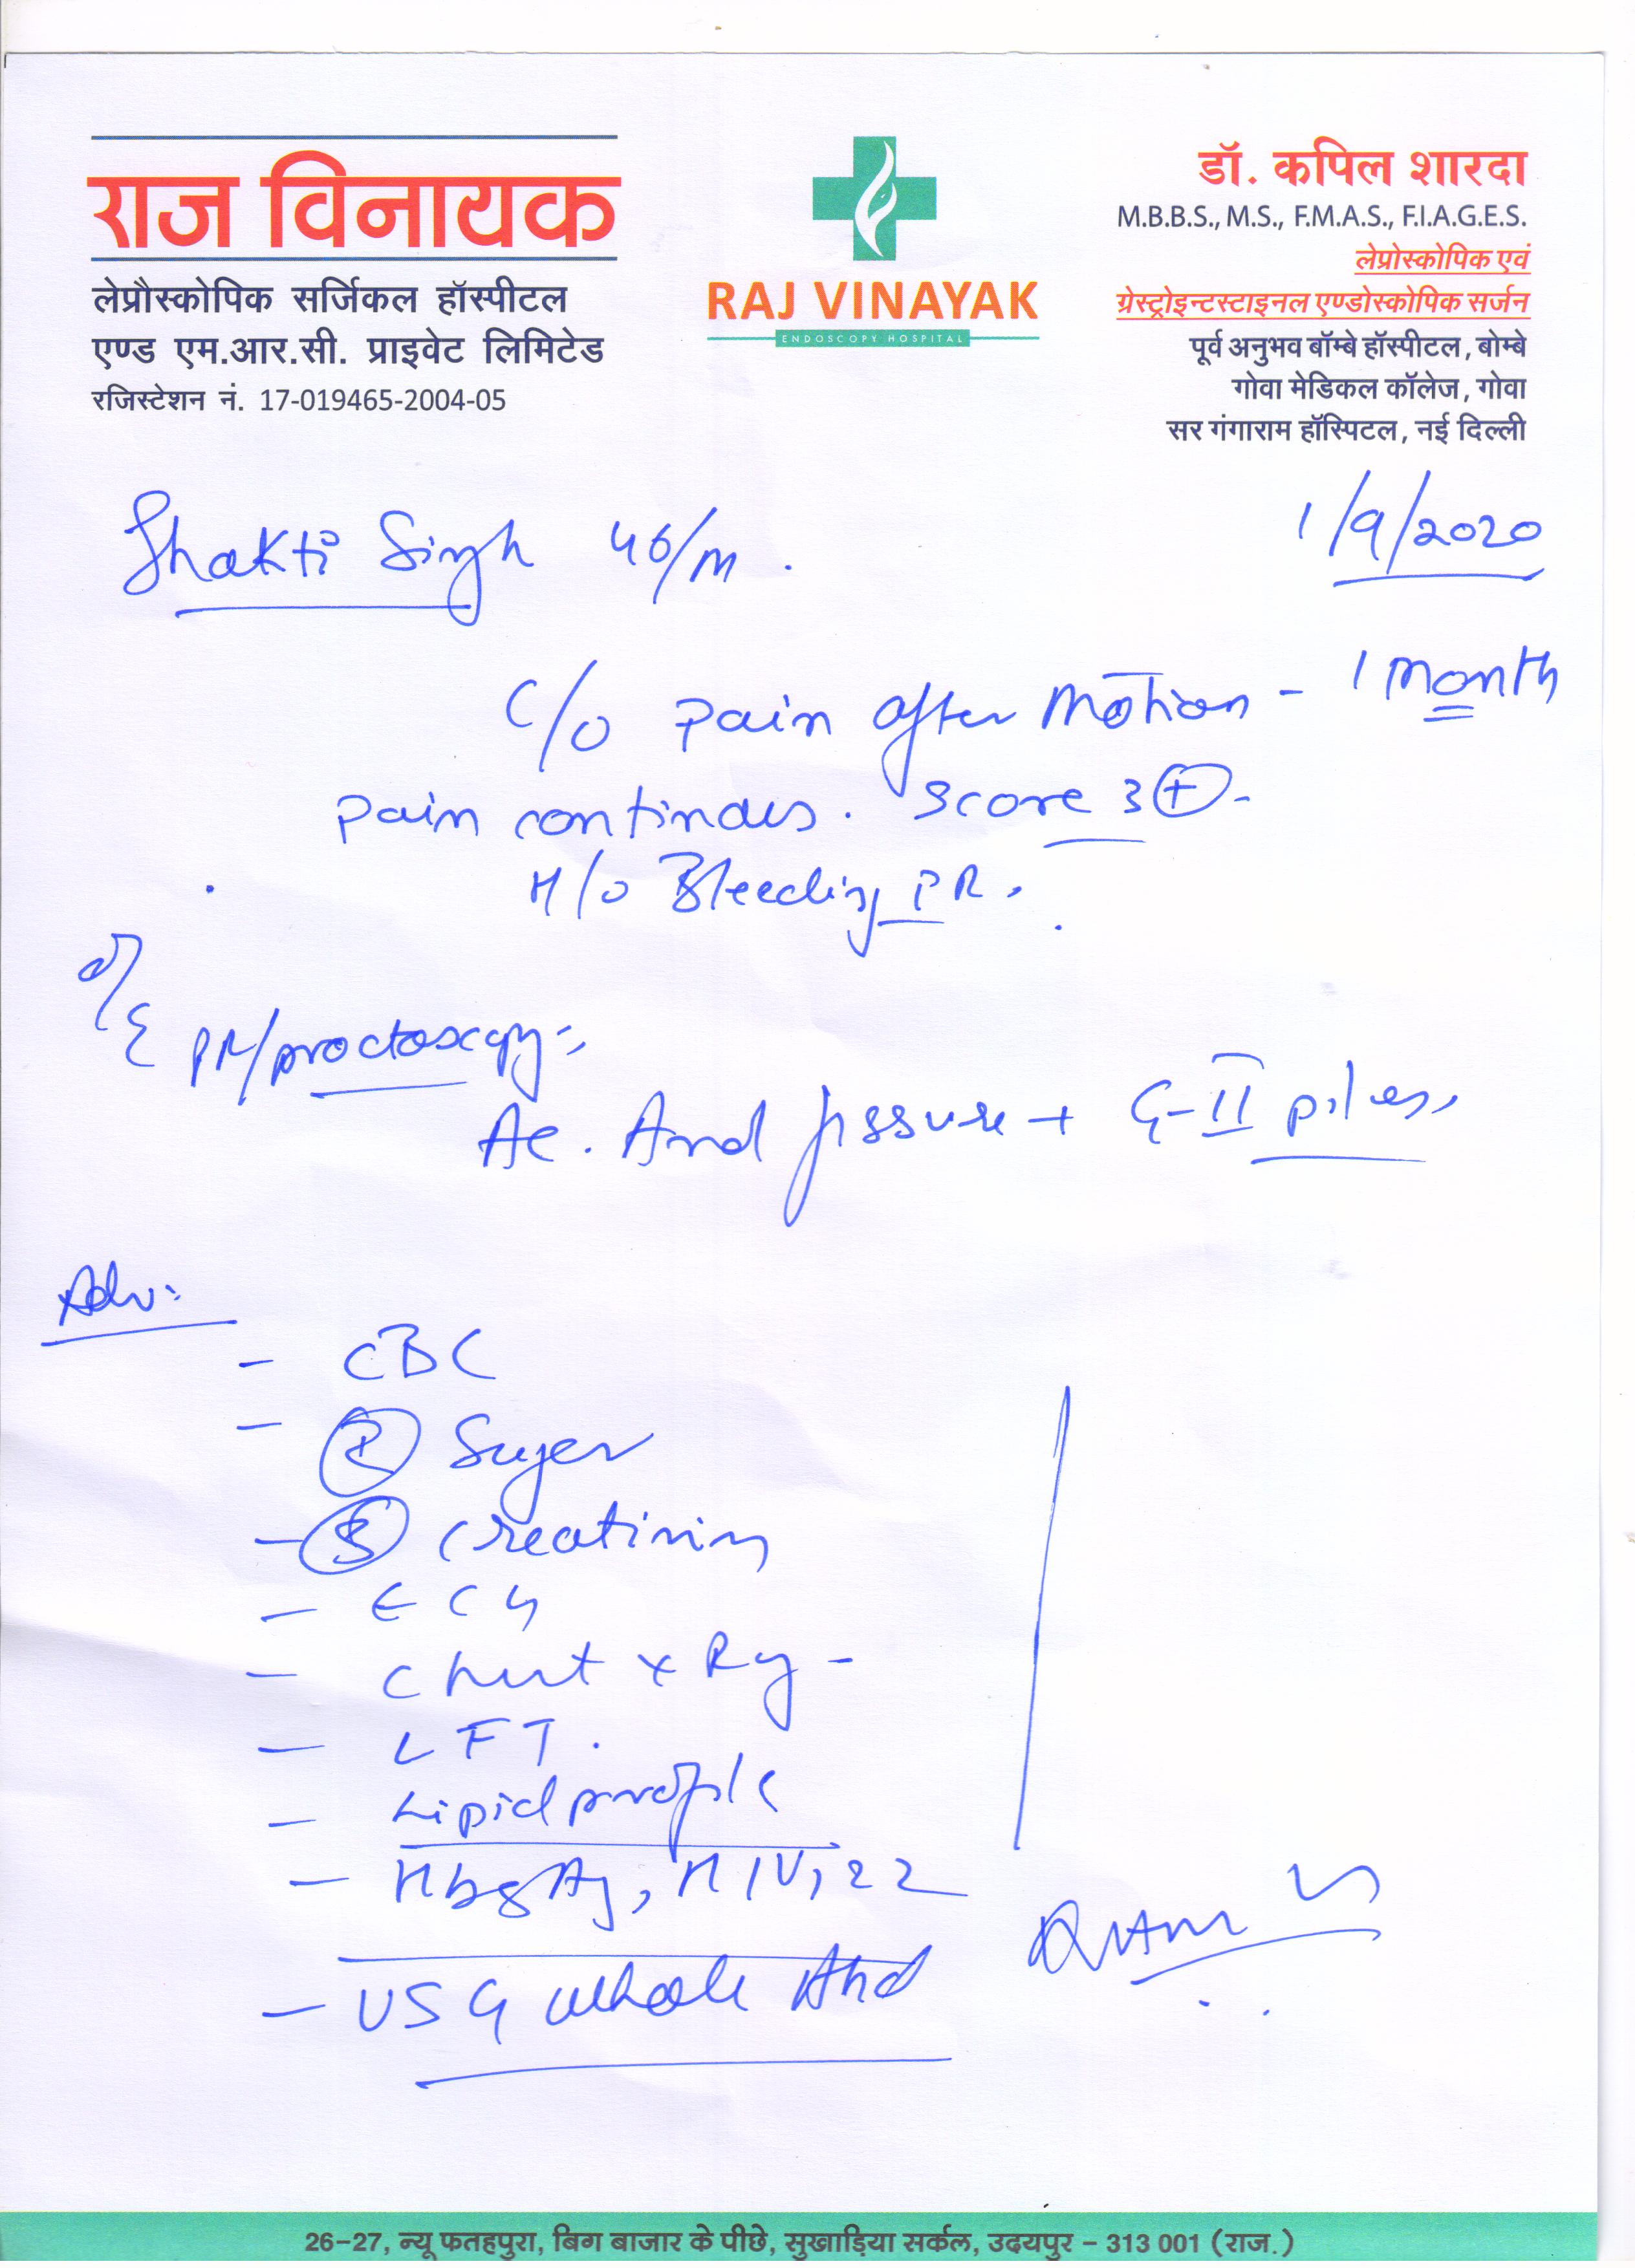 राज विनायक
लेप्रौस्कोपिक सर्जिकल हॉस्पीटल
एण्ड एम.आर.सी. प्राइवेट लिमिटेड
रजिस्टेशन नं. 17-019465-2004-05
RAJ VINAYAK
ENDOSCOPY HOSPITAL
डॉ. कपिल शारदा
M.B.B.S., M.S., F.M.A.S., F.I.A.G.E.S.
लेप्रोस्कोपिक एवं
ग्रेस्ट्रोइन्टस्टाइनल एण्डोस्कोपिक सर्जन
पूर्व अनुभव बॉम्बे हॉस्पीटल, बोम्बे
गोवा मेडिकल कॉलेज, गोवा
सर गंगाराम हॉस्पिटल, नई दिल्ली
1/9/2020
Shakti Singh 46/m.
C/O Pain after Motion - 1 Month
Pain continues. Score 3 +
H/o Bleeding PR.
O/E PR/proctoscopy:
Ac. Anal fissure + G-II piles
Adv:
- CBC
- R Suger
- S Creatinin
- ECG
- Chest x Ray -
- LFT.
- Lipid profile
- HbsAg, HIV,
- USG whole Abd
26-27, न्यू फतहपुरा, बिग बाजार के पीछे, सुखाड़िया सर्कल, उदयपुर - 313 001 (राज.)